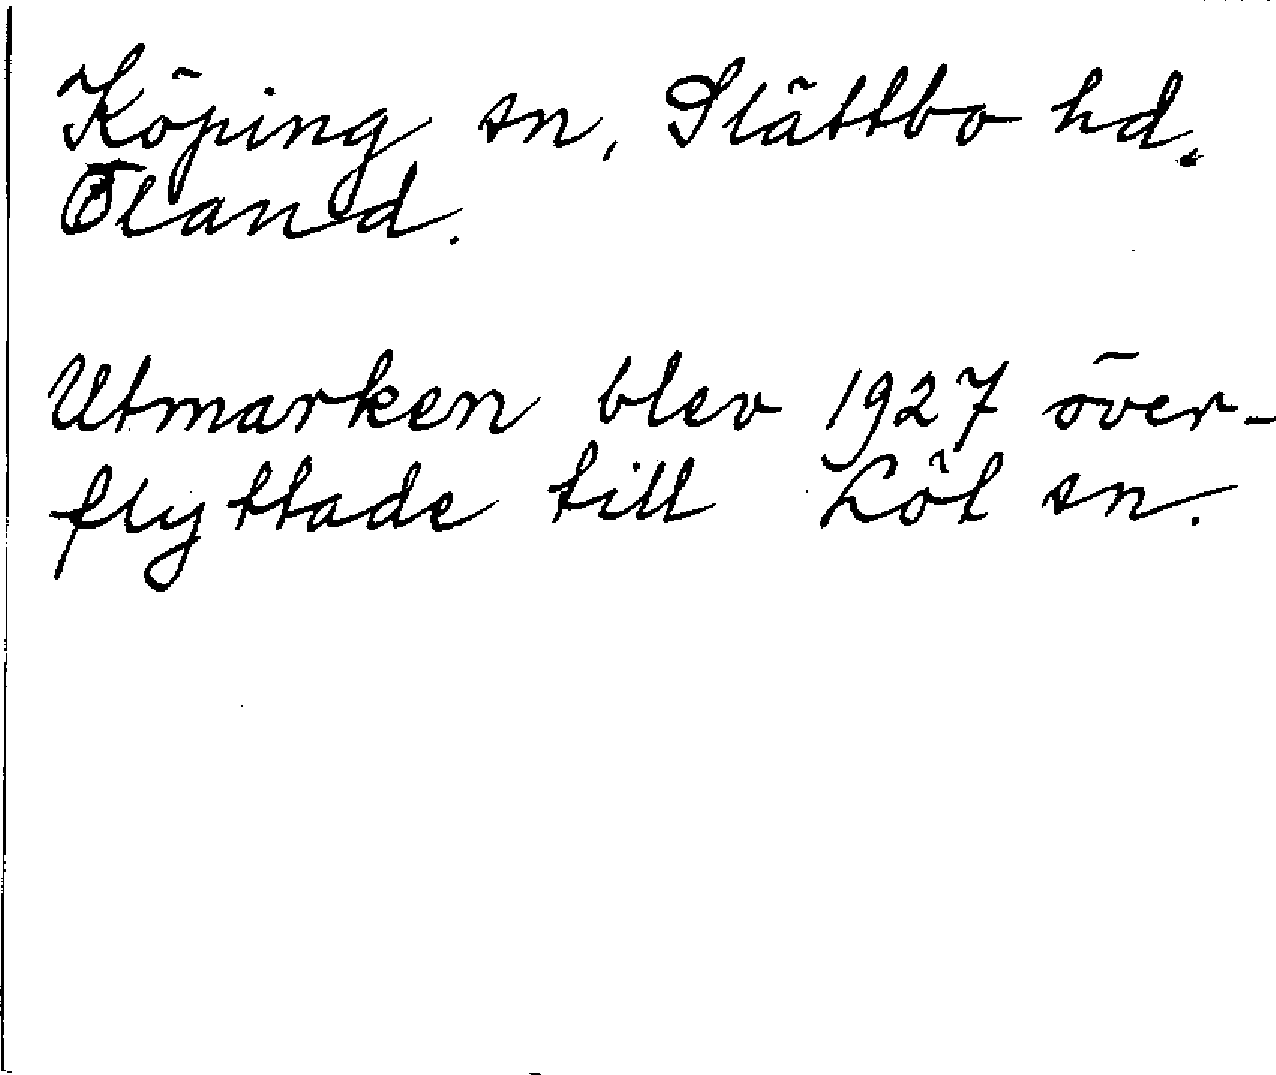 Köping sn, Slättbo hd.
Öland.
Utmarken blev 1927 över-
flyttade till Löt sn.